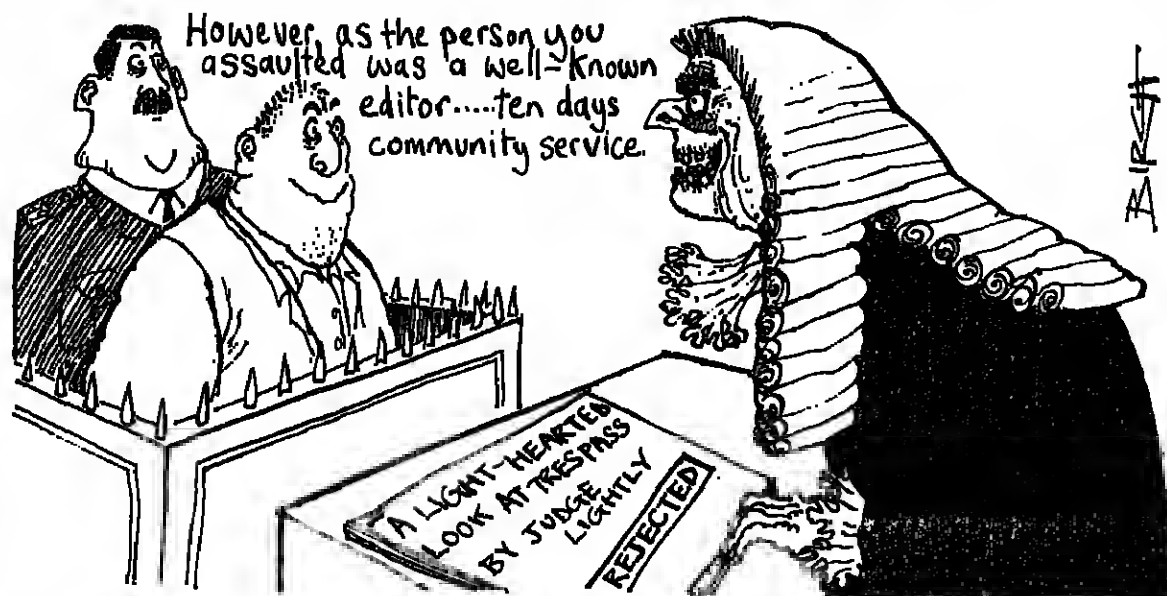 However, as the person you
assaulted was a well-known
editor.....ten days
community service.
BIRCH
A LIGHT-HEARTED
LOOK AT TRESPASS
BY JUDGE
LIGHTLY
REJECTED